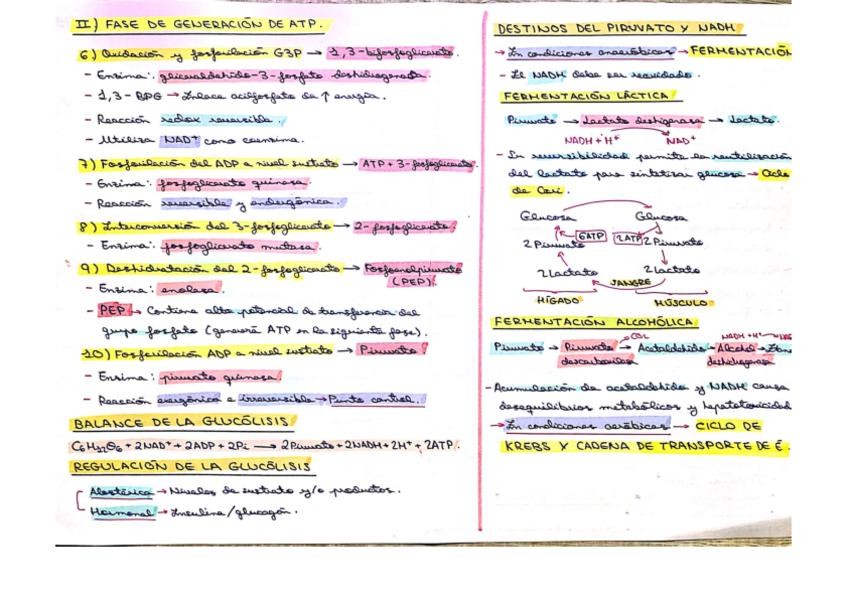 II) FASE DE GENERACIÓN DE ATP.
6) Oxidación y fosforilación G3P → 1,3-bifosfoglicerato.
- Enzima: gliceraldehído-3-fosfato deshidrogenasa.
- 1,3-BPG → Enlace acilfosfato de ↑ energía.
- Reacción redox reversible.
- Utiliza NAD+ como coenzima.
7) Fosforilación del ADP a nivel sustrato → ATP + 3-fosfoglicerato.
- Enzima: fosfoglicerato quinasa.
- Reacción reversible y endergónica.
8) Interconversión del 3-fosfoglicerato → 2-fosfoglicerato.
- Enzima: fosfoglicerato mutasa.
9) Deshidratación del 2-fosfoglicerato → Fosfoenolpiruvato
(PEP).
- Enzima: enolasa.
- PEP → Contiene alto potencial de transferencia del
grupo fosfato (generará ATP en la siguiente fase).
10) Fosforilación ADP a nivel sustrato → Piruvato.
- Enzima: piruvato quinasa.
- Reacción exergónica e irreversible → Punto control.
BALANCE DE LA GLUCÓLISIS
C6H12O6 + 2NAD+ + 2ADP + 2Pi → 2Piruvato + 2NADH + 2H+ + 2ATP.
REGULACIÓN DE LA GLUCÓLISIS
Alostérica → Niveles de sustrato y/o productos.
Hormonal → Insulina/glucagón.
DESTINOS DEL PIRUVATO Y NADH
→ En condiciones anaeróbicas → FERMENTACIÓN
- El NADH debe ser reoxidado.
FERMENTACIÓN LÁCTICA
Piruvato → Lactato deshigenasa → Lactato.
NADH + H+ NAD+
- Su reversibilidad permite la reutilización
del lactato para sintetizar glucosa → Ciclo
de Cori.
Glucosa Glucosa
6ATP 2ATP
2 Piruvato 2 Piruvato
2 Lactato 2 Lactato
SANGRE
HÍGADO MÚSCULO
FERMENTACIÓN ALCOHÓLICA
CO2 NADH + H+
Piruvato → Piruvato → Acetaldehído → Alcohol →
descarboxilasa deshidrogenasa
- Acumulación de acetaldehído y NADH causa
desequilibrios metabólicos y hepatotoxicidad
→ En condiciones aeróbicas → CICLO DE
KREBS Y CADENA DE TRANSPORTE DE é.